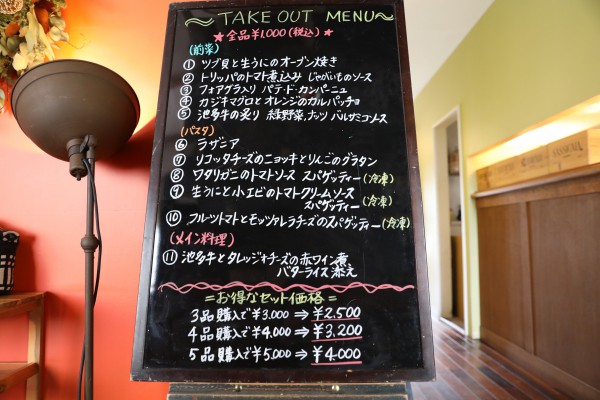 ~TAKE OUT MENU~
★全品¥1,000(税込)★
(前菜)
① ツブ貝と生うにのオーブン焼き
② トリッパのトマト煮込み じゃがいものソース
③ フォアグラ入り パテ・ド・カンパーニュ
④ カジキマグロとオレンジのカルパッチョ
⑤ 池多牛の炙り 緑野菜、ナッツ バルサミコソース
(パスタ)
⑥ ラザニア
⑦ リコッタチーズのニョッキとりんごのグラタン
⑧ ワタリガニのトマトソース スパゲッティー(冷凍)
⑨ 生うにと小エビのトマトクリームソース
スパゲッティー(冷凍)
⑩ フルーツトマトとモッツァレラチーズのスパゲッティー(冷凍)
(メイン料理)
⑪ 池多牛とタレッジオチーズの赤ワイン煮
バターライス添え
=お得なセット価格=
3品購入で¥3,000⇒¥2,500
4品購入で¥4,000⇒¥3,200
5品購入で¥5,000⇒¥4,000